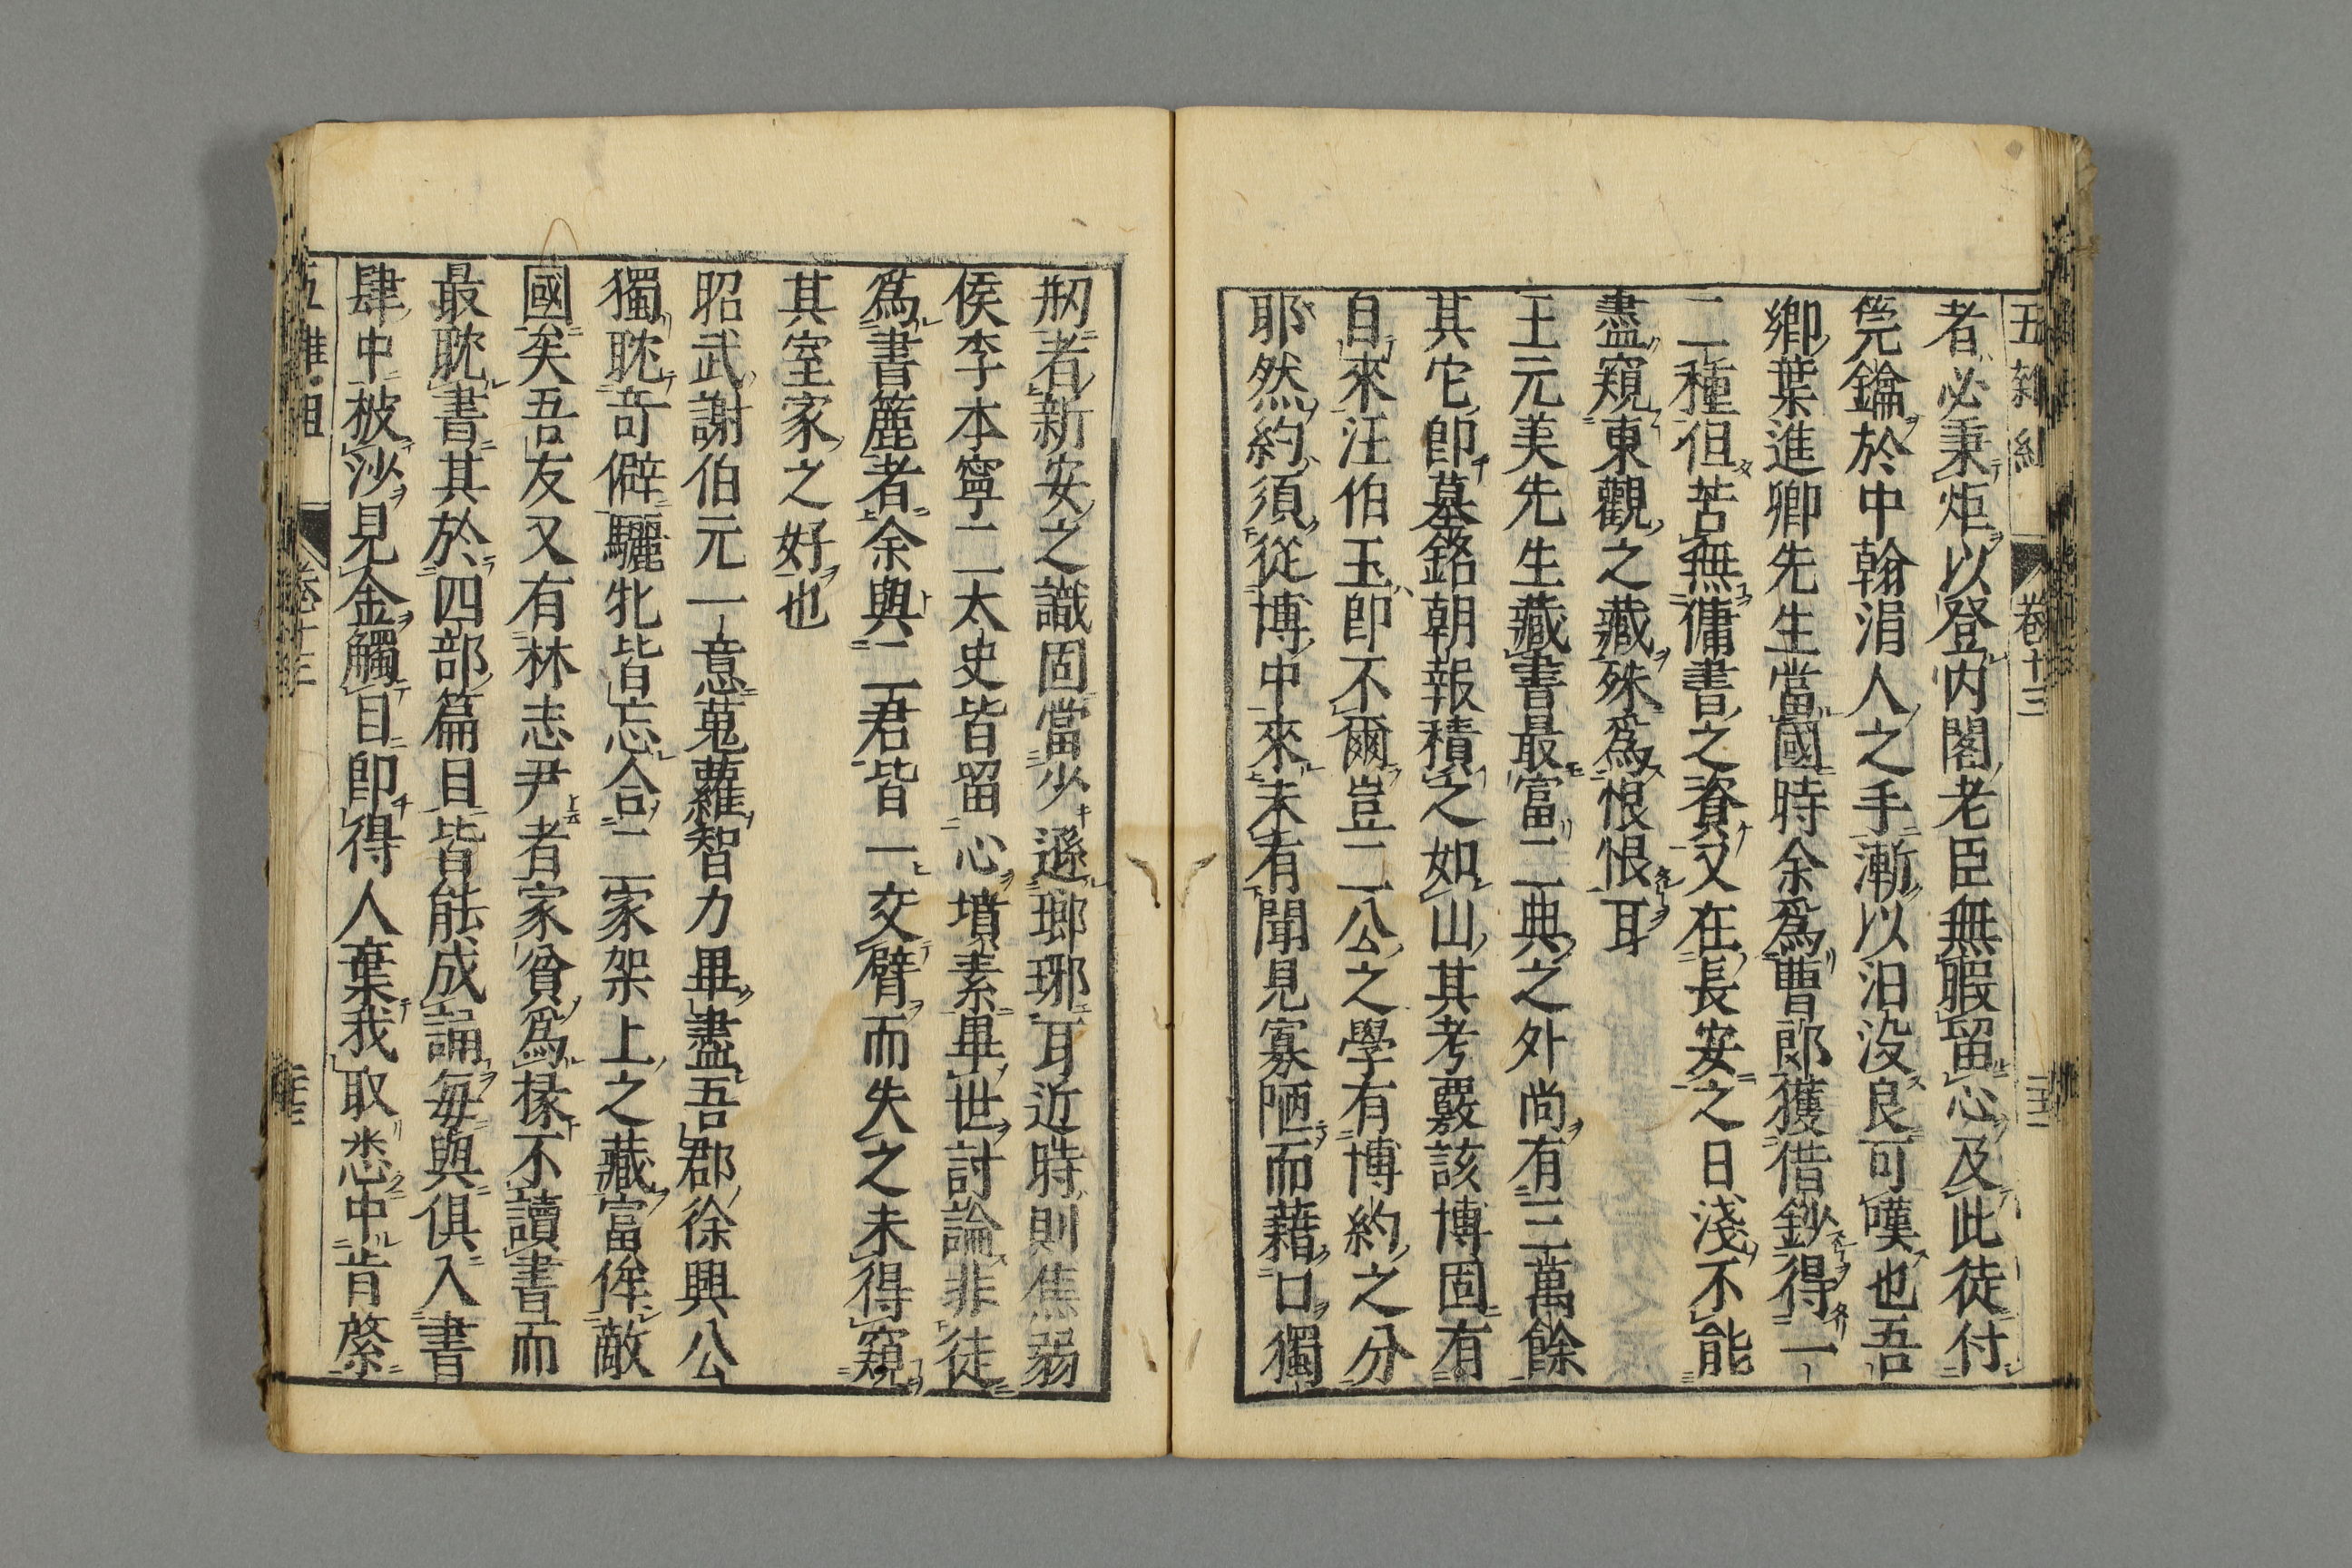 五雜組 卷十三
者必秉炬以登内閣老臣無暇留心及此徒付
筦鑰於中翰涓人之手漸以汩没良可嘆也吾
鄉葉進卿先生當國時余爲曹郎獲借鈔得一
二種但苦無傭書之資又在長安之日淺不能
盡窺東觀之藏殊爲恨恨耳
王元美先生藏書最富二典之外尚有三萬餘
其它即墓銘朝報積之如山其考覈該博固有
自來汪伯玉即不爾豈二公之學有博約之分
耶然約須從博中來未有聞見寡陋而藉口獨
剏者新安之識固當少遜瑯琊耳近時則焦弱
侯李本寧二太史皆留心墳素畢世討論非徒
爲書簏者余與二君皆一交臂而失之未得窺
其室家之好也
昭武謝伯元一意蒐蘿智力畢盡吾郡徐興公
獨耽奇僻驪牝皆忘合二家架上之藏富侔敵
國矣吾友又有林志尹者家貧爲掾不讀書而
最耽書其於四部篇目皆能成誦每與俱入書
肆中披沙見金觸目即得人棄我取悉中肯綮
五雜組 卷十三